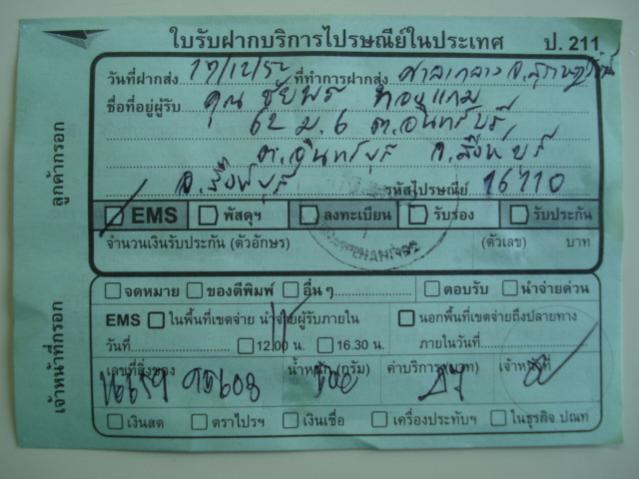 ใบรับฝากบริการไปรษณีย์ในประเทศ ป. 211
วันที่ฝากส่ง 17/12/52 ที่ทำการฝากส่ง ศาลากลาง จ.
ชื่อที่อยู่ผู้รับ คุณ ชัยพร ทองแถม
62 ม. 6 ต. อินทร์บุรี
อ. อินทร์บุรี จ. สิงห์บุรี
จ. สิงห์บุรี รหัสไปรษณีย์ 16110
ลูกค้ากรอก
EMS พัสดุฯ ลงทะเบียน รับรอง รับประกัน
จำนวนเงินรับประกัน (ตัวอักษร) (ตัวเลข) บาท
เจ้าหน้าที่กรอก
จดหมาย ของตีพิมพ์ อื่น ๆ ตอบรับ นำจ่ายด่วน
EMS ในพื้นที่เขตจ่าย นำจ่ายผู้รับภายใน นอกพื้นที่เขตจ่ายถึงปลายทาง
วันที่ 12.00 น. 16.30 น. ภายในวันที่
เลขที่สิ่งของ น้ำหนัก (กรัม) ค่าบริการ (บาท) เจ้าหน้าที่
เงินสด ตราไปรฯ เงินเชื่อ เครื่องประทับฯ ในธุรกิจ ปณท